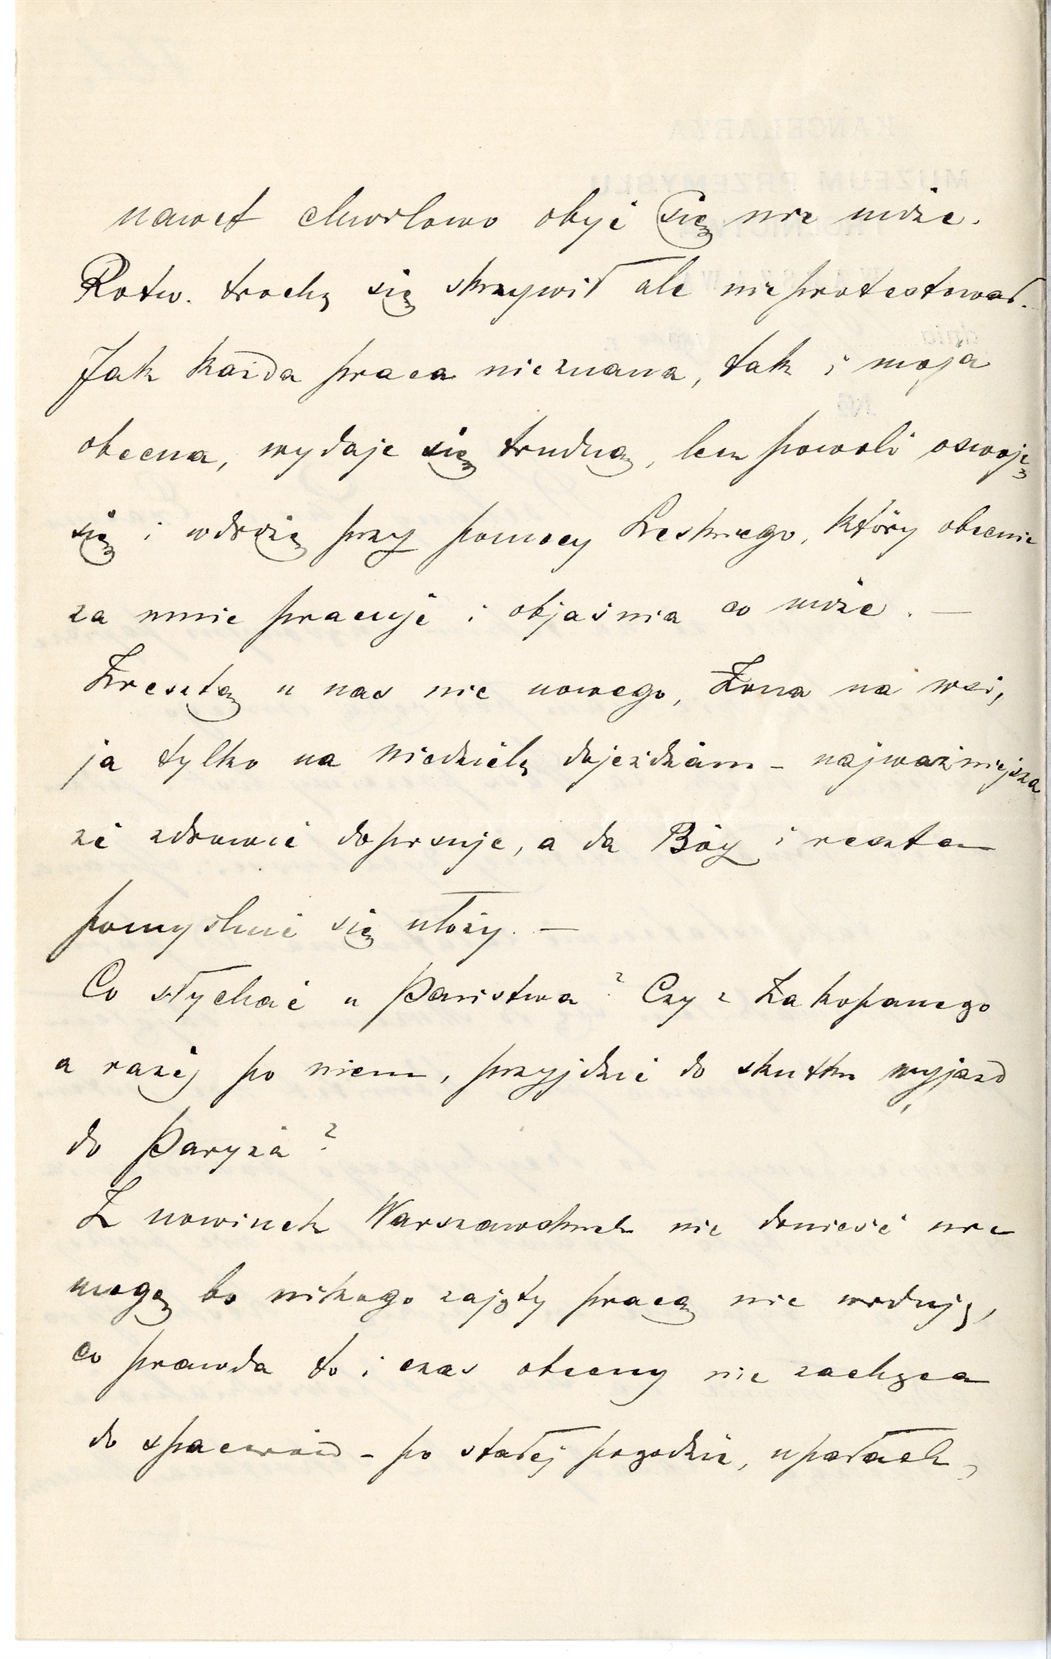 nawet chwilowo obyć się nie może.
Rotw. trochę się skrzywił ale nie protestował.
Jak każda praca nieznana, tak i moja
obecna, wydaje się trudną, lecz powoli oswoję
się i wdrożę przy pomocy Leskiego, który obecnie
za mnie pracuje i objaśnia co może. —
Zresztą u nas nic nowego, Żona na wsi,
ja tylko na niedzielę dojeżdżam - najważniejsza
że zdrowie dopisuje, a da Bóg i reszta
pomyślnie się ułoży. —
Co słychać u Państwa? Czy z Zakopanego
a raczej po niem, przyjdzie do skutku wyjazd
do Paryża?
Z nowinek Warszawskich nic donieść nie
mogę bo nikogo zajęty pracą nie widuję,
co prawda to i czas obecny nie zachęca
do spacerów - po stałej pogodzie, upałach,
KANCELARYA
MUZEUM PRZEMYSŁU
dnia
№